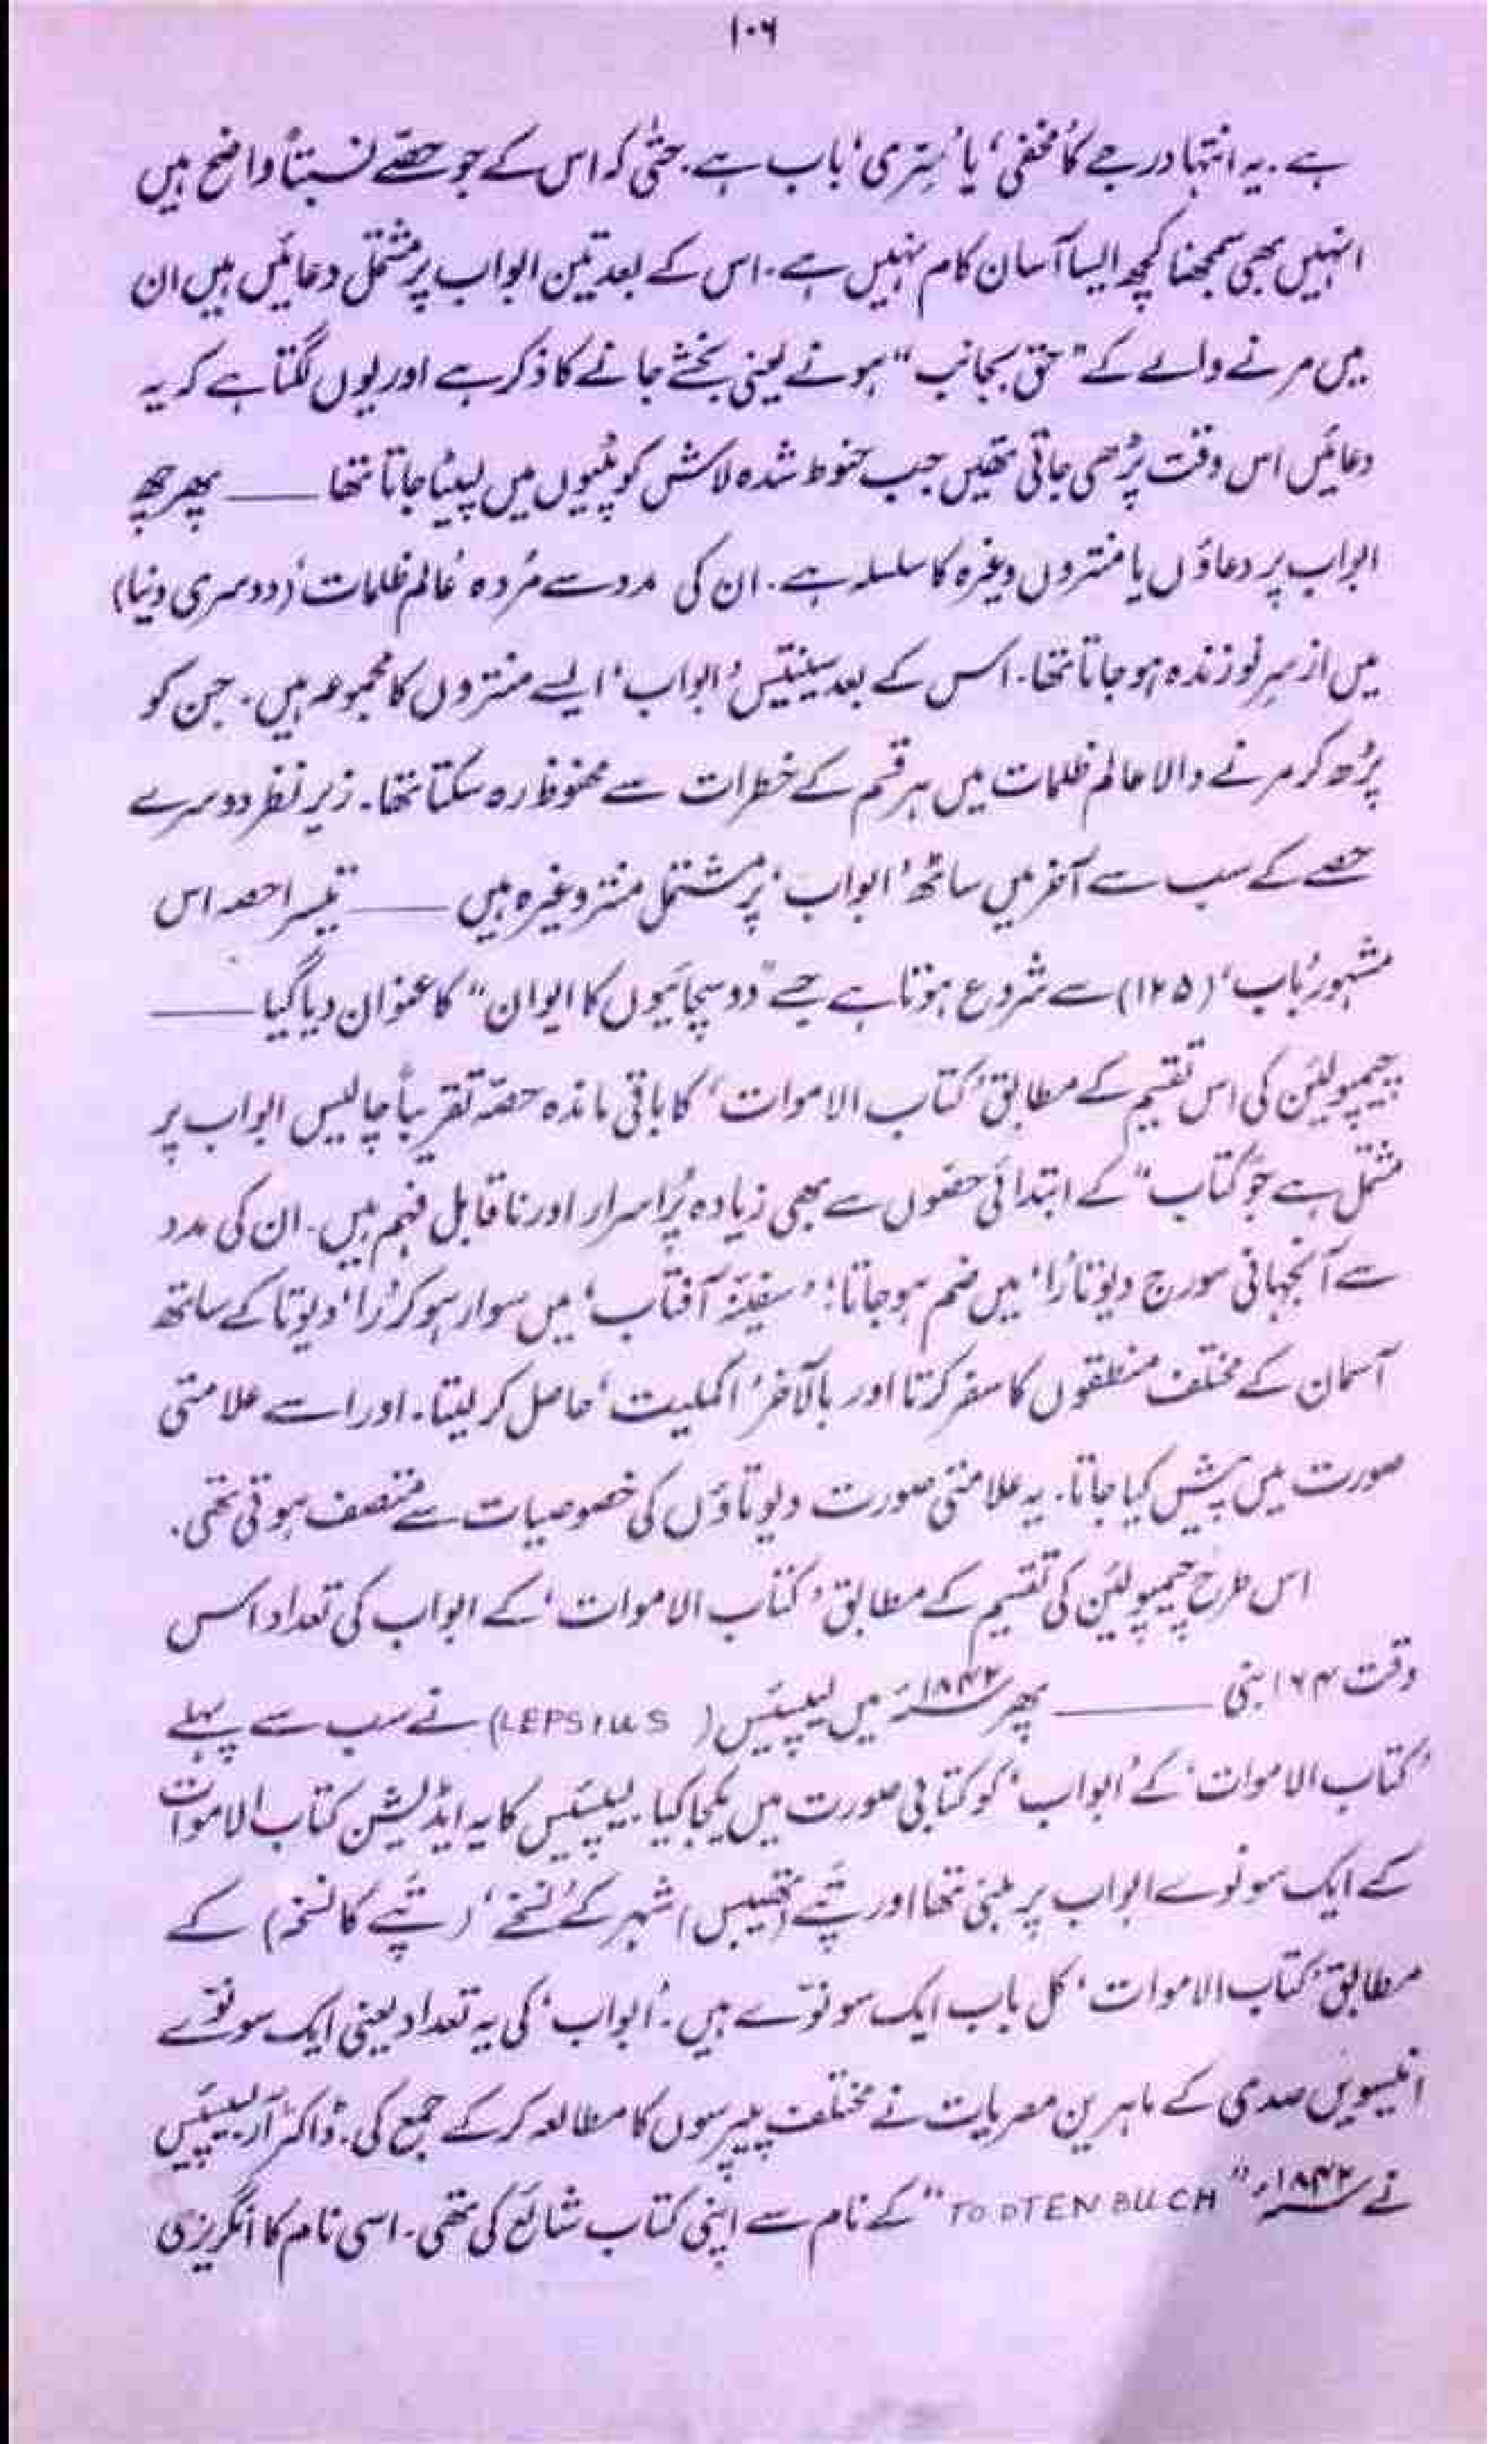 ۱۰۶
ہے۔ یہ انتہا درجے کا 'مخفی' یا 'سِتری' باب ہے۔ حتیٰ کہ اس کے جو حصّے نسبتاً واضح ہیں
انہیں بھی سمجھنا کچھ ایسا آسان کام نہیں ہے۔ اس کے بعد تین ابواب پر مشتمل دعائیں ہیں ان
میں مرنے والے کے "حق بجانب" ہونے یعنی بخشے جانے کا ذکر ہے اور یوں لگتا ہے کہ یہ
دعائیں اس وقت پڑھی جاتی تھیں جب حنوط شدہ لاش کو پٹیوں میں لپیٹا جاتا تھا ــــــ پھر چھ
ابواب پر دعاؤں یا منتروں وغیرہ کا سلسلہ ہے۔ ان کی مدد سے مُردہ 'عالم ظلمات' (دوسری دنیا)
میں از سرِ نو زندہ ہو جاتا تھا۔ اس کے بعد سینتیس 'ابواب' ایسے منتروں کا مجموعہ ہیں۔ جن کو
پڑھ کر مرنے والا عالم ظلمات میں ہر قسم کے خطرات سے محفوظ رہ سکتا تھا۔ زیر نظر دوسرے
حصے کے سب سے آخر میں ساٹھ 'ابواب' پر مشتمل منتر وغیرہ ہیں ــــــ تیسرا حصہ اس
مشہور 'باب' (۱۲۵) سے شروع ہوتا ہے جسے "دو سچائیوں کا ایوان" کا عنوان دیا گیا ــــــ
چیمپولیئن کی اس تقسیم کے مطابق 'کتاب الاموات' کا باقی ماندہ حصّہ تقریباً چالیس ابواب پر
مشتمل ہے جو "کتاب" کے ابتدائی حصوں سے بھی زیادہ پُراسرار اور ناقابل فہم ہیں۔ ان کی مدد
سے آنجہانی سورج دیوتا 'را' میں ضم ہو جاتا؛ 'سفینۂ آفتاب' میں سوار ہو کر 'را' دیوتا کے ساتھ
آسمان کے مختلف منطقوں کا سفر کرتا اور بالآخر 'اکملیت' حاصل کر لیتا۔ اور اسے علامتی
صورت میں پیش کیا جاتا۔ یہ علامتی صورت دیوتاؤں کی خصوصیات سے متصف ہوتی تھی۔
اس طرح چیمپولیئن کی تقسیم کے مطابق 'کتاب الاموات' کے ابواب کی تعداد اس
وقت ۱۶۴ بنی ــــــ پھر ۱۸۴۲ء میں لیپسیئس (LEPSIUS) نے سب سے پہلے
'کتاب الاموات' کے 'ابواب' کو کتابی صورت میں یکجا کیا۔ لیپسیئس کا یہ ایڈیشن کتاب الاموات
کے ایک سو نوے ابواب پر مبنی تھا اور تپے (تھیبس) شہر کے 'نسخے' (تپے کا نسخہ) کے
مطابق 'کتاب الاموات' کل باب ایک سو نوّے ہیں۔ 'ابواب' کی یہ تعداد یعنی ایک سو نوّے
انیسویں صدی کے ماہرین مصریات نے مختلف پیپرسوں کا مطالعہ کر کے جمع کی۔ ڈاکٹر آر لیپسیئس
نے ۱۸۴۲ء "TODTENBUCH" کے نام سے اپنی کتاب شائع کی تھی۔ اسی نام کا انگریزی